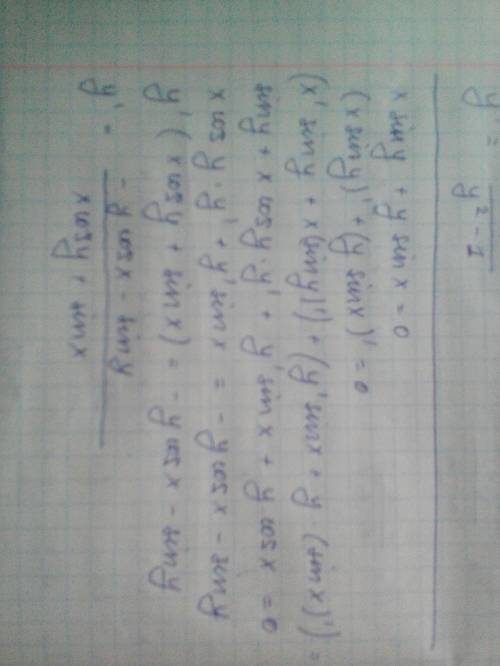 y = ‾‾‾ y² - 1
x sin y + y sin x = 0
(x sin y)' + (y sin x)' = 0
(x' sin y + x (sin y)') + (y' sin x + y · (sin x)') =
sin y + x cos y · y' + y' sin x + y cos x = 0
x cos y · y' + y' sin x = - y cos x - sin y
y' (x cos y + sin x) = - y cos x - sin y
y' = - y cos x - sin y
x cos y + sin x